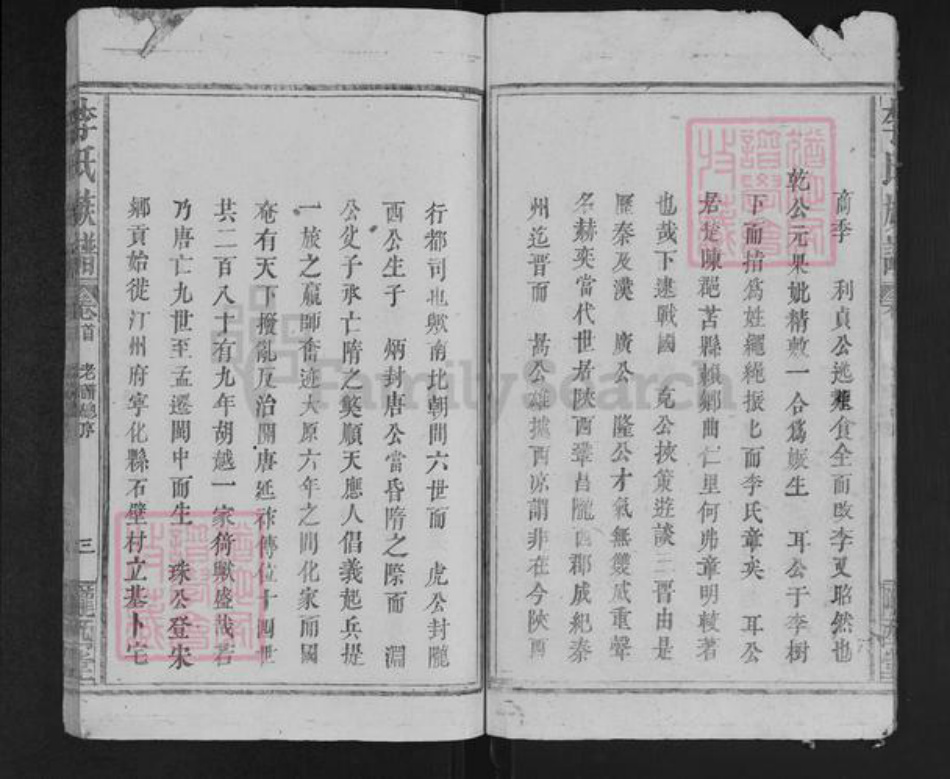 商季 利貞公逃難食全而改李又昭然也
乾公元果妣精敷一合為娠生 耳公于李樹
下而指爲姓繩繩振七而李氏章矣 耳公
居楚陳邑苦縣賴鄉曲仁里何弗章明較著
也哉下逮戰國 克公挾策遊談三晋由是
歷秦及漢 廣公 隆公才氣無雙威重聲
名赫奕當代世居陝西鞏昌隴西郡成紀秦
州迄晋而 暠公雄據西凉謂非在今陝西
行都司也歟南北朝間六世而 虎公封隴
西公生子 炳封唐公當昏隋之際而 淵
公父子承亡隋之獘順天應人倡義起兵提
一旅之羸師奮迹太原六年之間化家而國
奄有天下撥亂反治開唐延祚傳位十四世
共二百八十有九年胡越一家猗歟盛哉若
乃唐亡九世至孟遷閩中而生 珠公登宋
鄉貢始徙汀州府寧化縣石壁村立基卜宅
李氏族譜 卷首 老譜總序 三
李氏族譜
FamilySearch